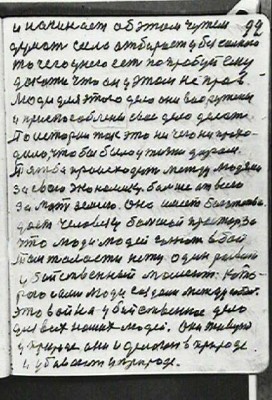 и начинает об этом чутем 99
думает сила отбирает у бессильного
то чего у него есть попробуй ему
докажи что он у этом не прав.
Люди для этого дело они вооружены
и приспособлены свое дело делать
По истории так это ни чего не прохо-
дило, что бы было у жизни даром.
Борьба происходит между людями
за свою экономику, больше от всего
за мать землю. Она имеет
дает человеку большой простор за
это люди людей гонют в бой
Там жалости нету один
убийственный момент. Кото-
рого сами люди создали между собой.
Это война убийственное дело
для всех наших людей. Они живут
у природе они и делают в природе
и убивают у природе.